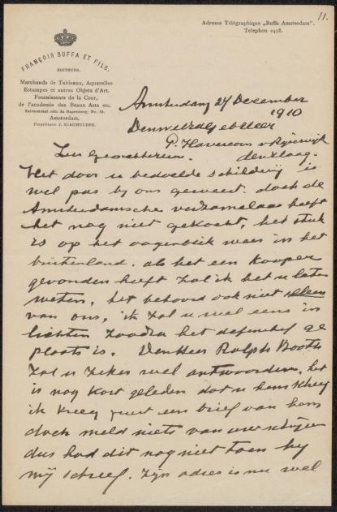 11.
Adresse Télégraphique „Buffa Amsterdam".
Telephon 1458.
FRANÇOIS BUFFA ET FILS.
EDITEURS.
Marchands de Tableaux, Aquarelles
Estampes et autres Objets d'Art.
Fournisseurs de la Cour,
de l'académie des Beaux Arts etc.
Amsterdam.
Amsterdam 24 December
1910
Den Weledelgeb Heer
P. Haverkorn v Rijsewijk
den Haag.
Zeer Geachte heer.
Het door u bedoelde schilderij is
wel pas bij ons geweest. doch de
Amsterdamsche verzamelaar heeft
het nog niet gekocht, het stuk
is op het oogenblik weer in het
buitenland. als het een kooper
gevonden heeft zal ik het u laten
weten, het behoord ook niet alleen
van ons, ik zal u wel eens in
lichten zoodra het definitief ge
plaats is. Den Heer Ralph Booth
zal u zeker wel antwoorden, het
is nog kort geleden dat u hem schreef
ik kreeg juist een brief van hem
doch meld niets van uw schrijven
dus had dit nog niet toen hij
mij schreef. Zijn adres is nu wel